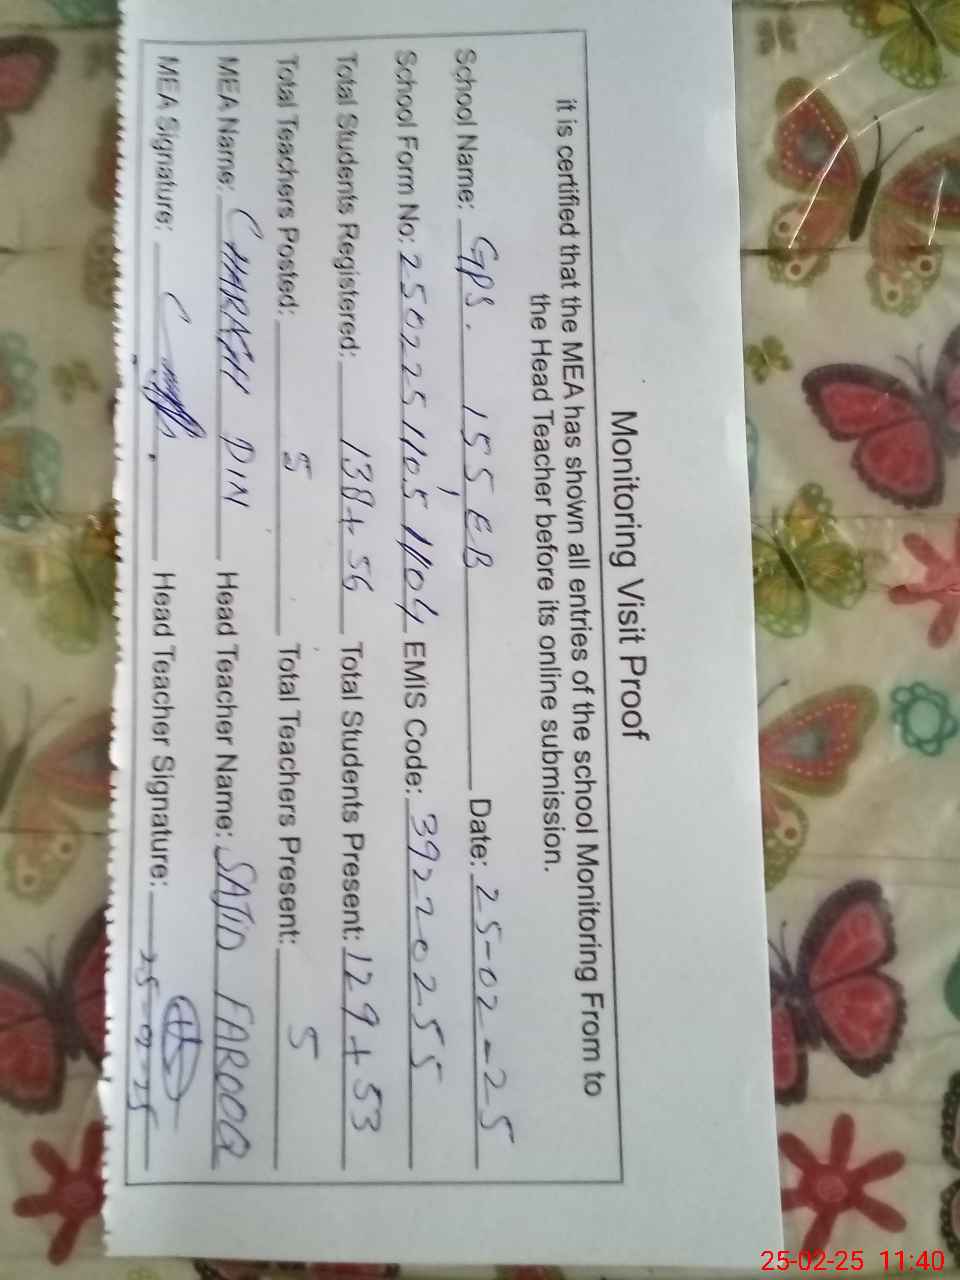 Monitoring Visit Proof
it is certified that the MEA has shown all entries of the school Monitoring From to
the Head Teacher before its online submission.
School Name: GPS. 155 EB Date: 25-02-25
School Form No: 250225 1105 1104 EMIS Code: 39220255
Total Students Registered: 138+56 Total Students Present: 129+53
Total Teachers Posted: 5 Total Teachers Present: 5
MEA Name: CHARAGH DIN Head Teacher Name: SAJID FAROOQ
MEA Signature: Head Teacher Signature: 25-02-25
25-02-25 11:40